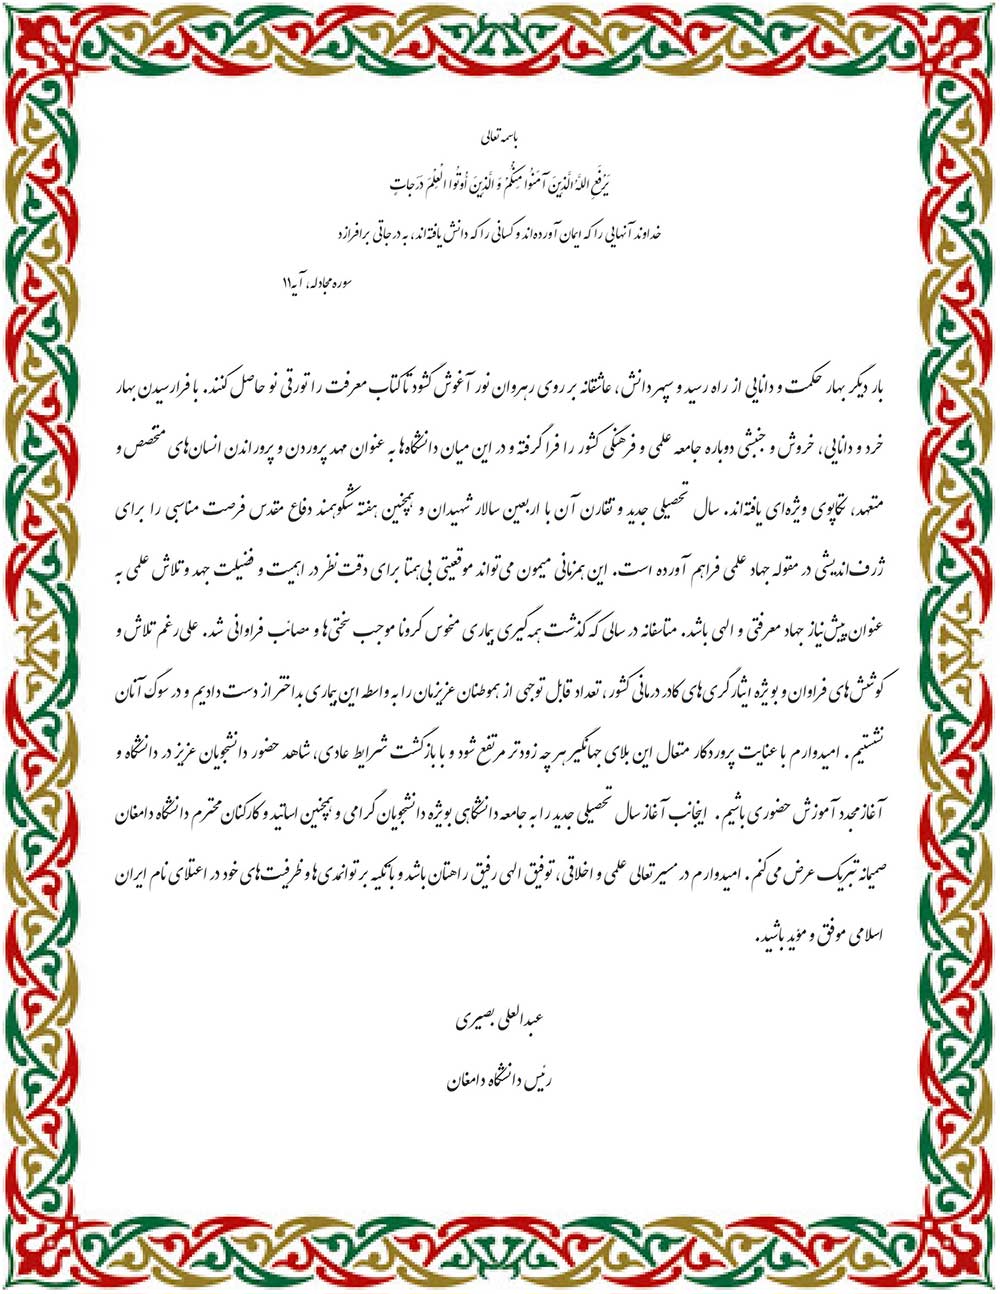 باسمه تعالی
يَرْفَعِ اللَّهُ الَّذِينَ آمَنُوا مِنْكُمْ وَ الَّذِينَ أُوتُوا الْعِلْمَ دَرَجَاتٍ
خداوند آنهایی را که ایمان آورده‌اند و کسانی را که دانش یافته‌اند، به درجاتی برافرازد
سوره مجادله، آیه ۱۱
بار دیگر بهار حکمت و دانایی از راه رسید و سپهر دانش، عاشقانه بر روی رهروان نور آغوش گشود تا کتاب معرفت را تورقی نو حاصل کنند. با فرارسیدن بهار
خرد و دانایی، خروش و جنبشی دوباره جامعه علمی و فرهنگی کشور را فرا گرفته و در این میان دانشگاه‌ها به عنوان مهد پروردن و پروراندن انسان‌های متخصص و
متعهد، تکاپوی ویژه‌ای یافته‌اند. سال تحصیلی جدید و تقارن آن با اربعین سالار شهیدان و همچنین هفته شکوهمند دفاع مقدس فرصت مناسبی را برای
ژرف‌اندیشی در مقوله جهاد علمی فراهم آورده است. این همزمانی میمون می‌تواند موقعیتی بی‌همتا برای دقت نظر در اهمیت و فضیلت جهد و تلاش علمی به
عنوان پیش‌نیاز جهاد معرفتی و الهی باشد. متاسفانه در سالی که گذشت همه‌گیری بیماری منحوس کرونا موجب سختی‌ها و مصائب فراوانی شد. علی‌رغم تلاش و
کوشش‌های فراوان و بویژه ایثارگری‌های کادر درمانی کشور، تعداد قابل توجهی از هموطنان عزیزمان را به واسطه این بیماری بداختر از دست دادیم و در سوگ آنان
نشستیم. امیدوارم با عنایت پروردگار متعال این بلای جهانگیر هر چه زودتر مرتفع شود و با بازگشت شرایط عادی، شاهد حضور دانشجویان عزیز در دانشگاه و
آغاز مجدد آموزش حضوری باشیم. اینجانب آغاز سال تحصیلی جدید را به جامعه دانشگاهی بویژه دانشجویان گرامی و همچنین اساتید و کارکنان محترم دانشگاه دامغان
صمیمانه تبریک عرض می‌کنم. امیدوارم در مسیر تعالی علمی و اخلاقی، توفیق الهی رفیق راهتان باشد و با تکیه بر توانمدی‌ها و ظرفیت‌های خود در اعتلای نام ایران
اسلامی موفق و مؤید باشید.
عبدالعلی بصیری
رئیس دانشگاه دامغان